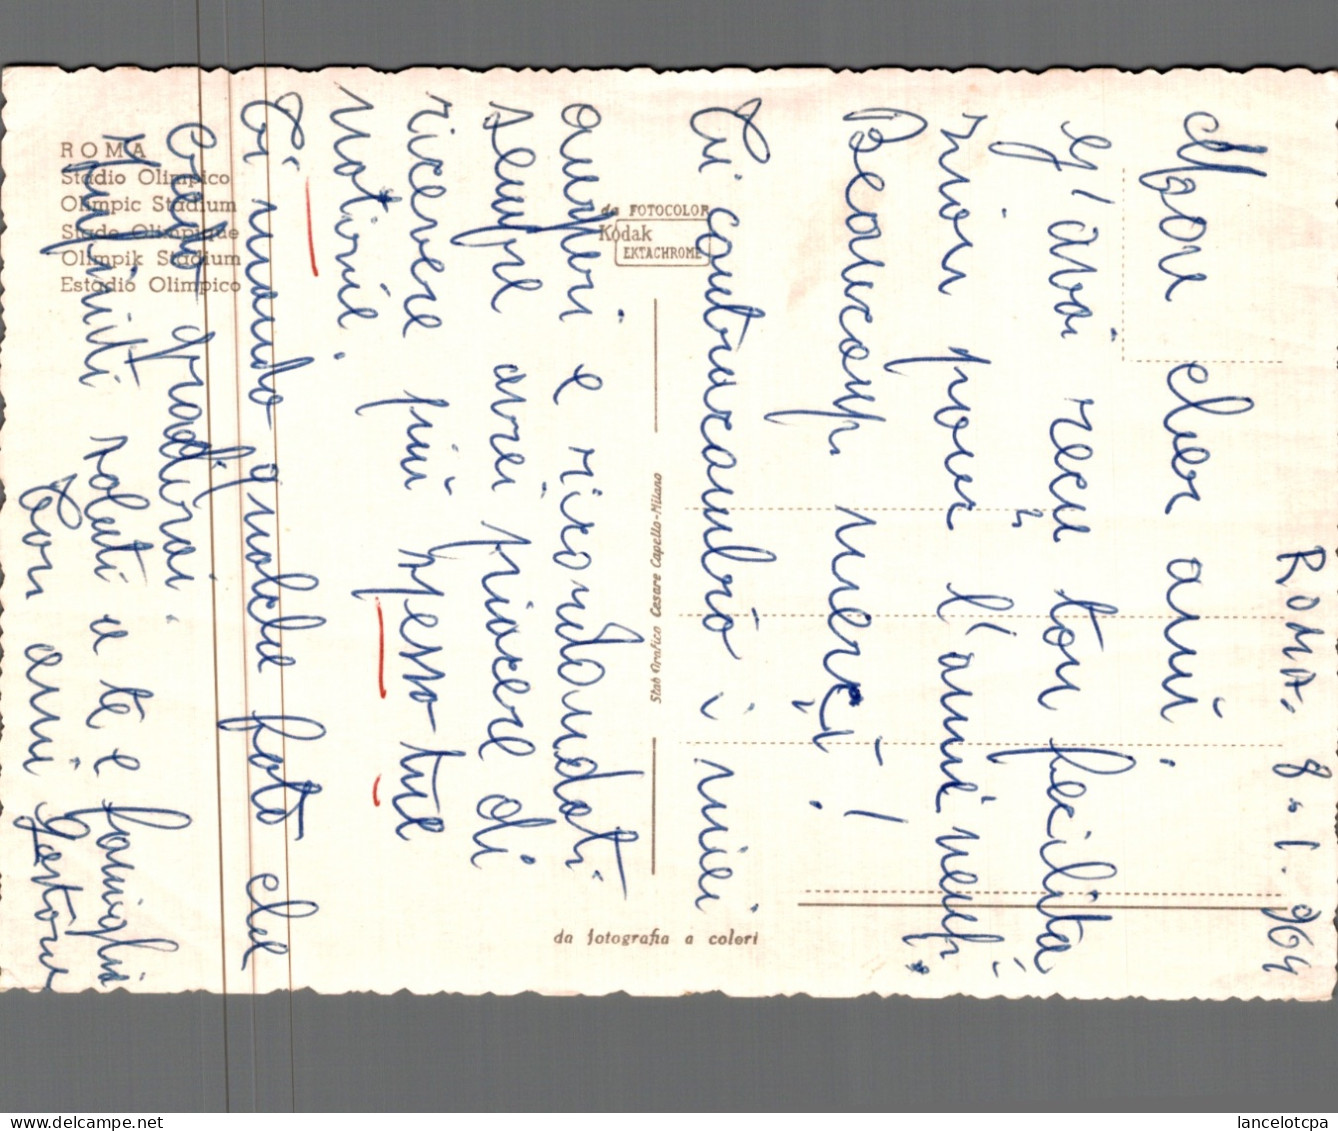 ROMA
Stadio Olimpico
Olimpic Stadium
Stade Olimpique
Olimpik Stadium
Estadio Olimpico
da FOTOCOLOR
Kodak
EKTACHROME
Stab Grafico Cesare Capello-Milano
da fotografia a colori
ROMA, 8-1-964
Mon cher ami,
J'avai reçu ton fecilita
zion pour l'ami neuf.
Beaucoup merçi!
Ti contraccambrò i miei
auguri e ricordandoti
sempre avrei piacere di
ricevere più spesso tue
notizie.
Ti mando qualche foto che
Credo gradirai.
saluti a te e famiglia
Ton ami
lancelotcpa